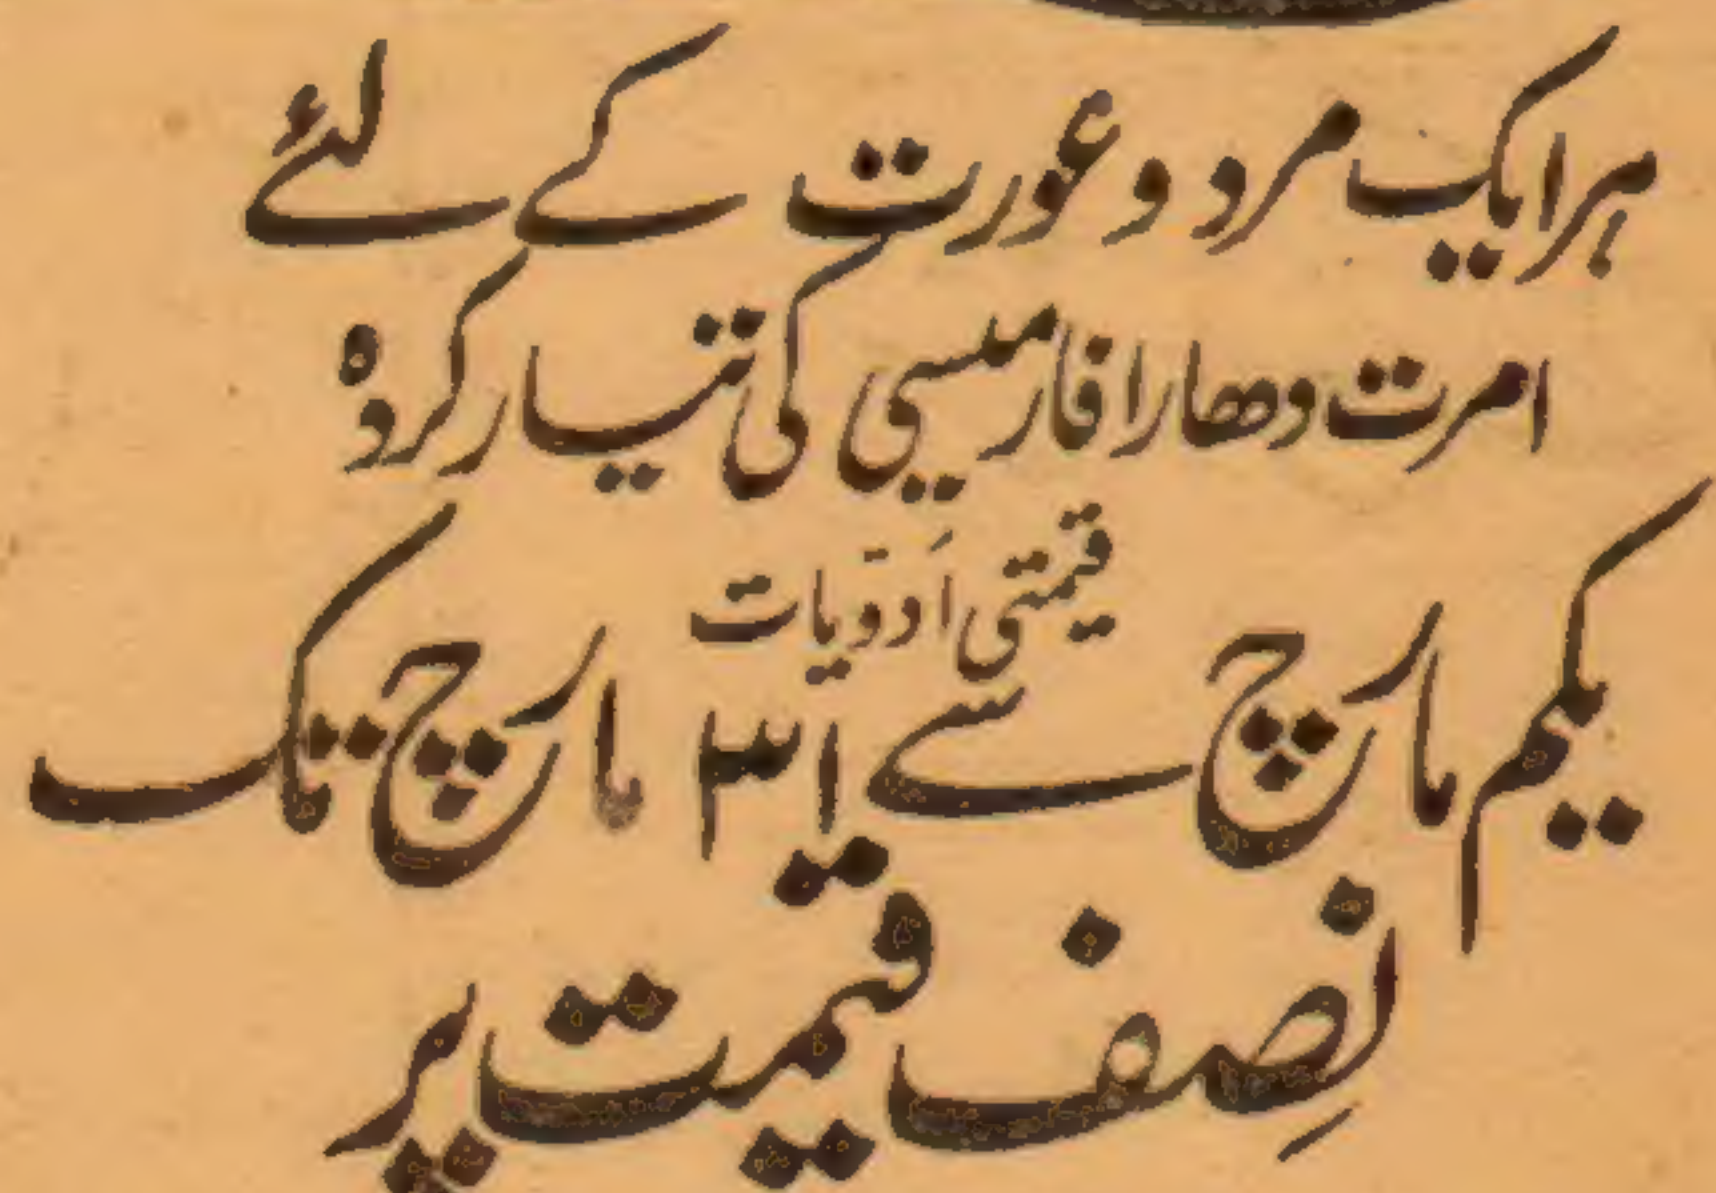 ہر ایک مرد و عورت کے لئے
امرت دھارا فارمیسی کی تیار کردہ
قیمتی اَدویات
یکم مارچ سے ۳۱ مارچ تک
نِصف قیمت پر